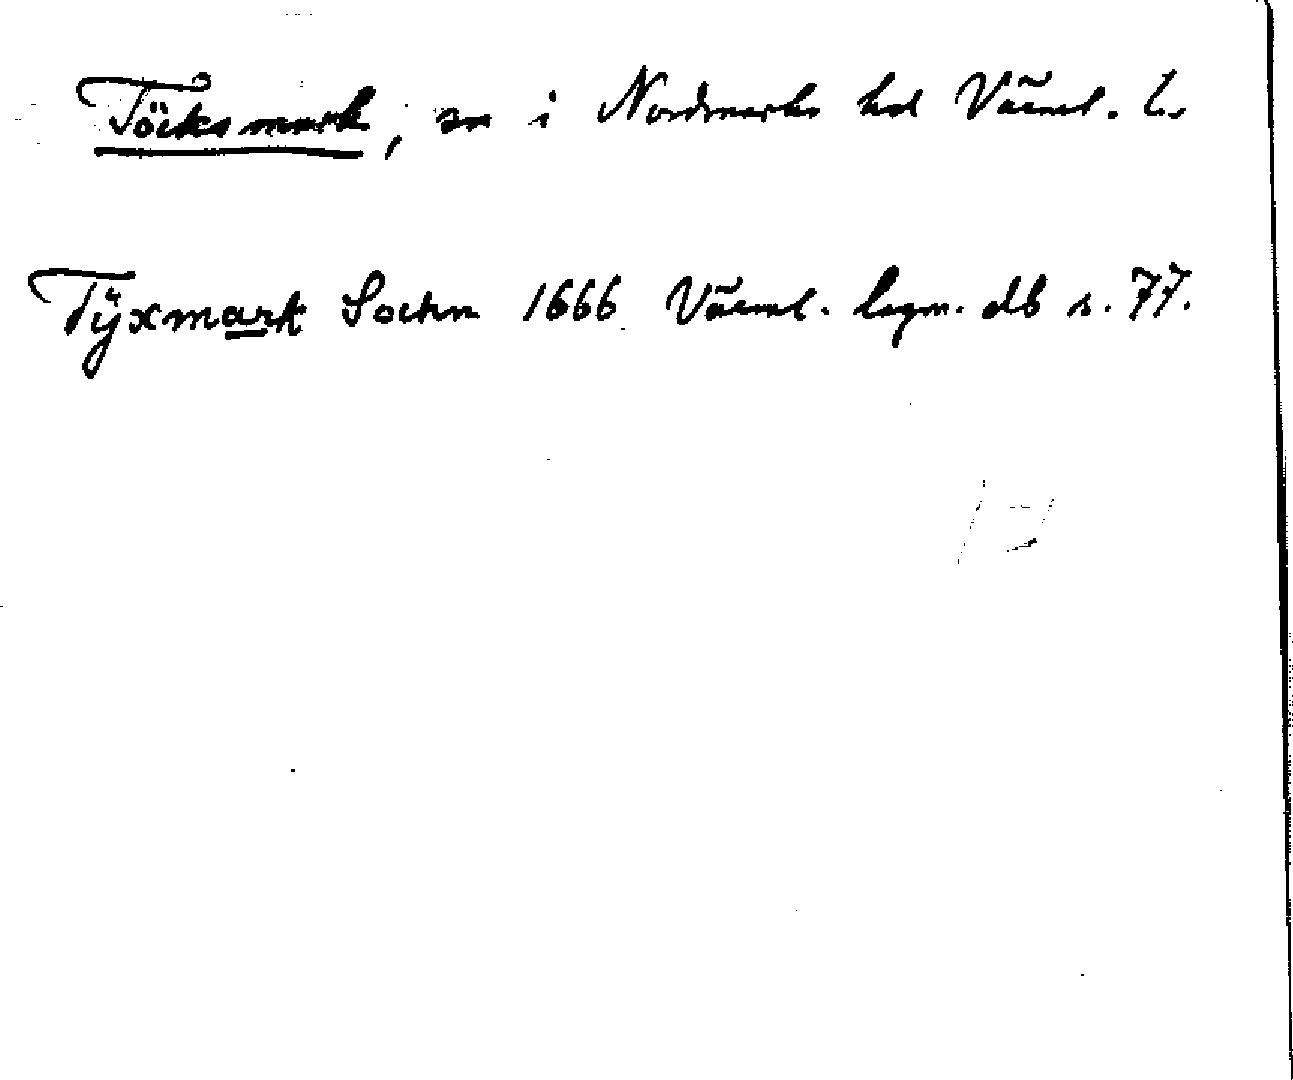 Töcksmark, sn i Nordmarks hd Värml. l.
Tÿxmark Sochn 1666 Värml. lagm. db s. 77.